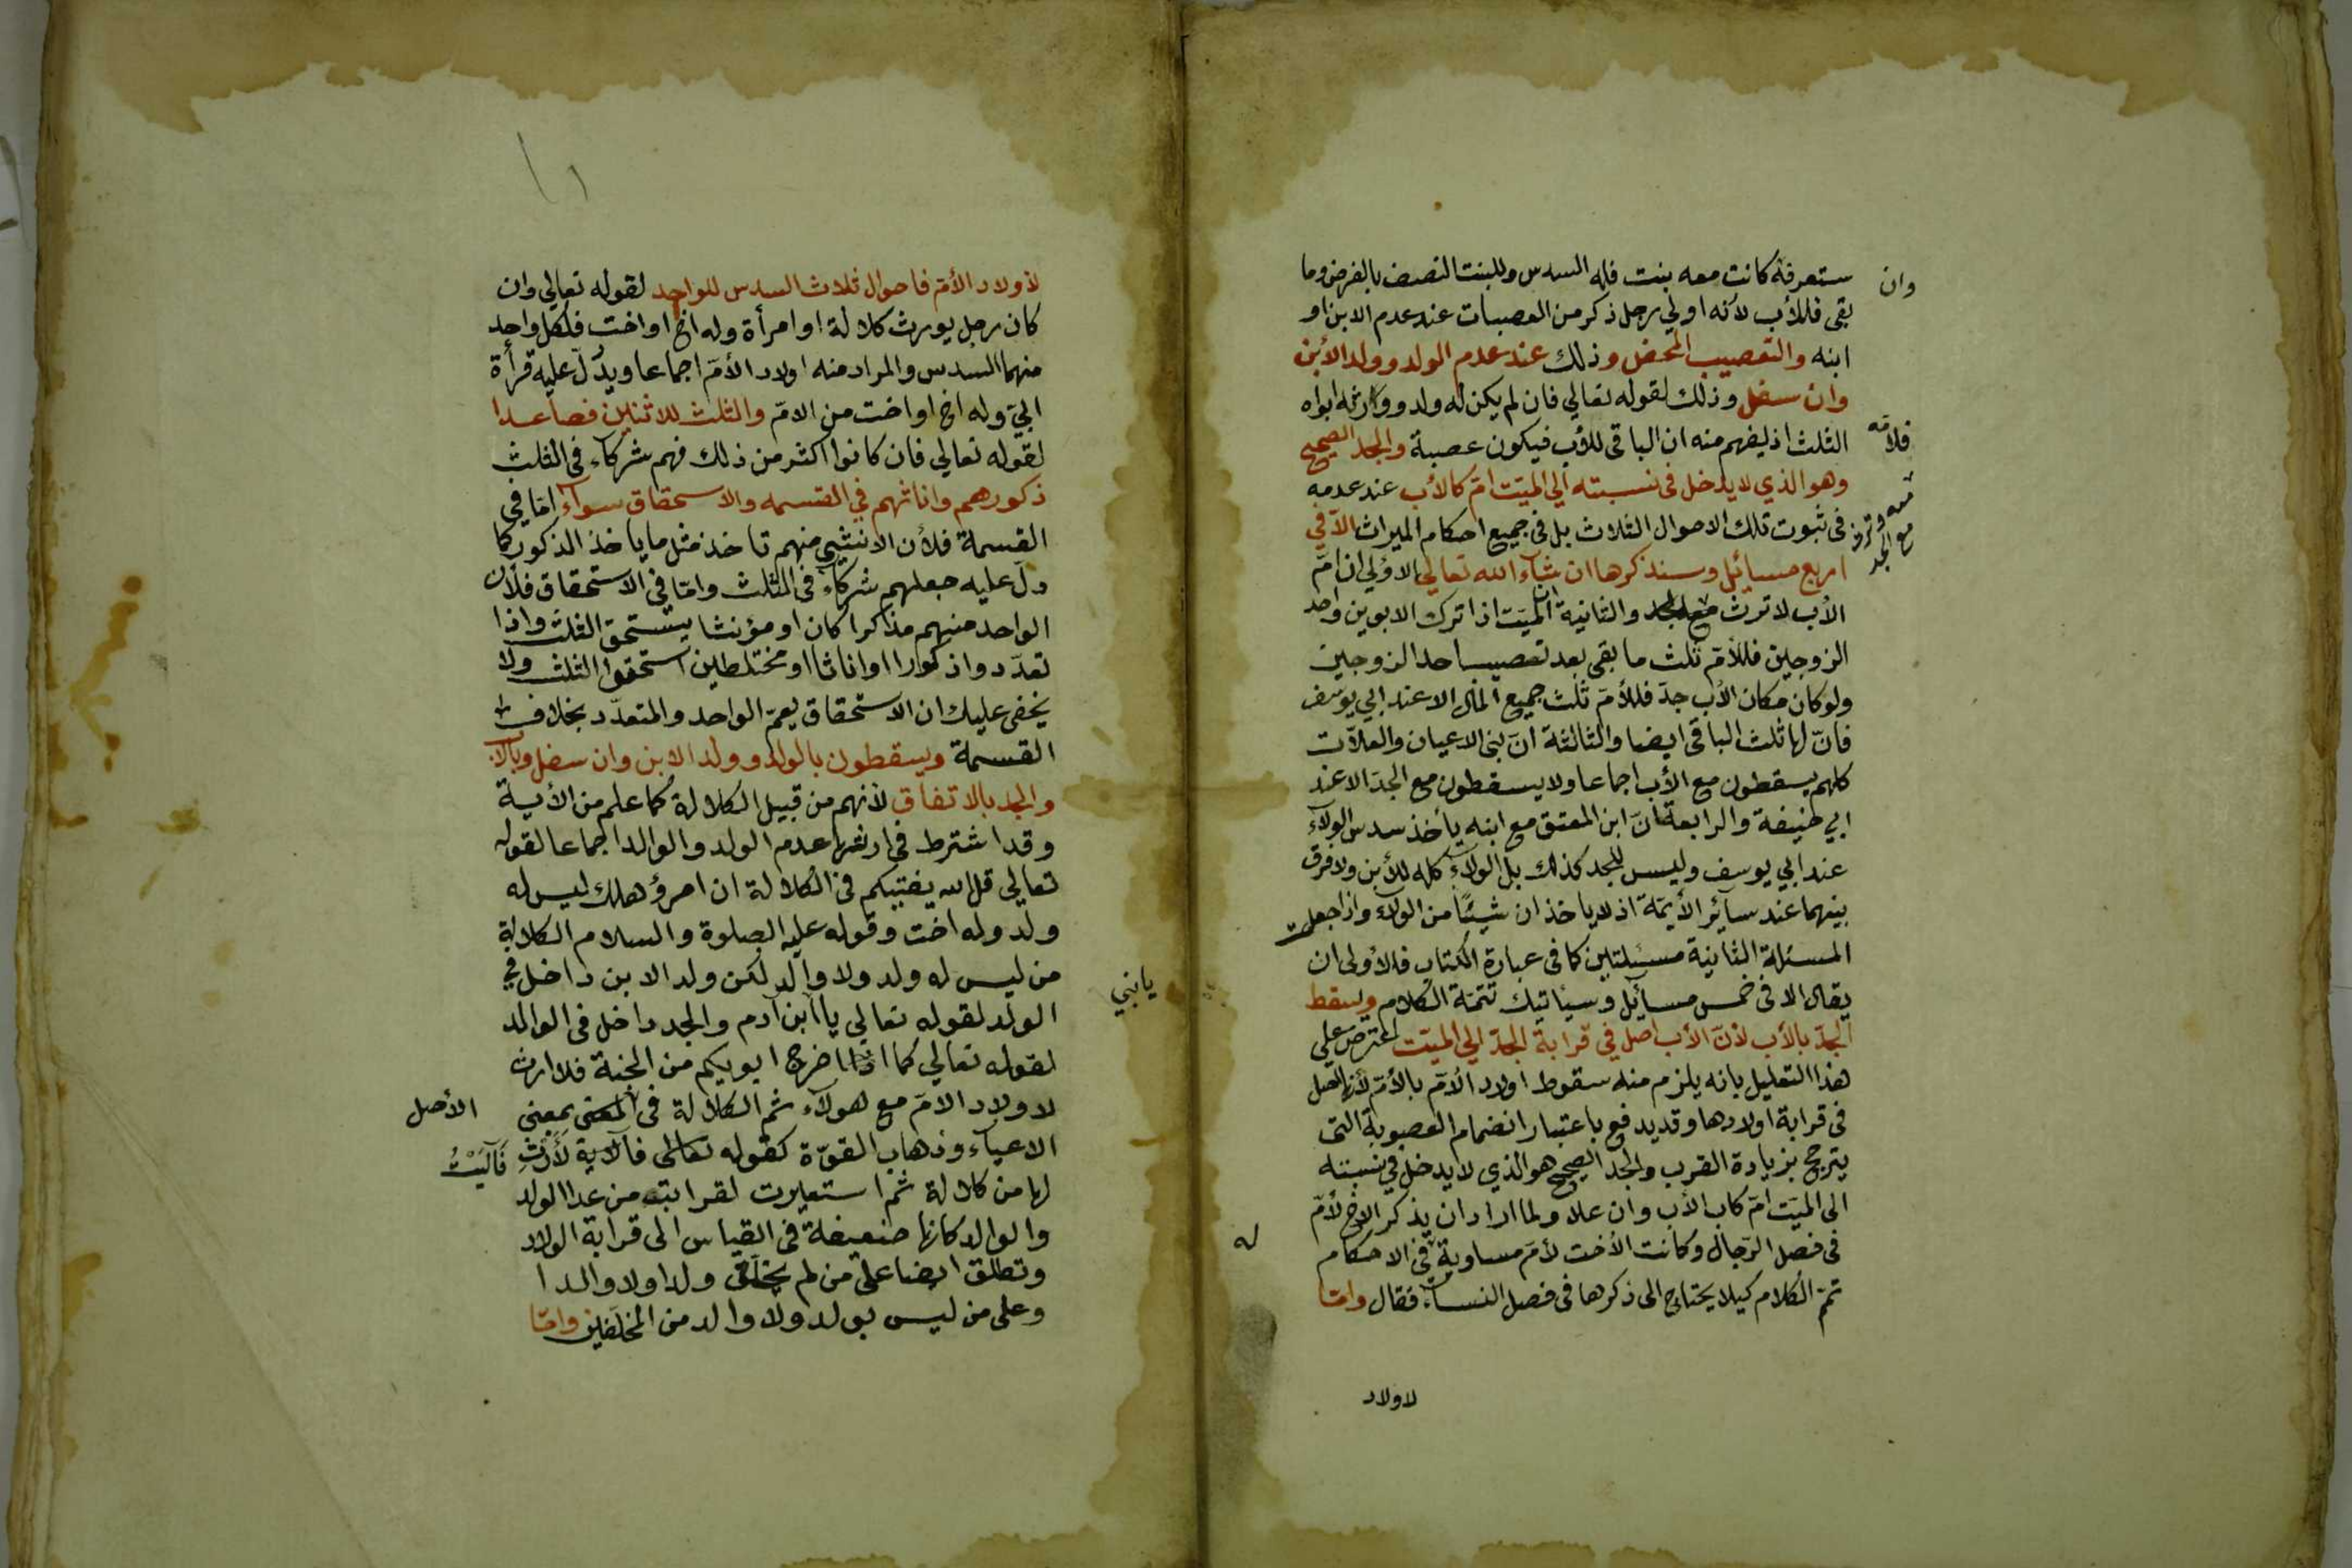 ستعرفه كانت معه بنت فله السدس وللبنت النصف بالفرض وما
وان
بقى فللأب لانه اولي رجل ذكر من العصبات عند عدم الابن او
ابنه والتعصيب المحض وذلك عند عدم الولد وولد الأبن
وان سفل وذلك لقوله تعالي فان لم يكن له ولد وورثه ابواه
الثلث اذ يفهم منه ان الباقى للأب فيكون عصبة والجد الصحيح
فلأمه
وهو الذي لا يدخل فى نسبته الي الميت امّ كالأب عند عدمه
فى ثبوت تلك الاحوال الثلاث بل فى جميع احكام الميراث الاّ في
اربع مسائل وسنذكرها ان شآء الله تعالي الاولي ان امّ
الأب لا ترث مع الجد والثانية ان الميّت اذا ترك الابوين واحد
مع الجد
الزوجين فللأمّ ثلث ما بقى بعد نصيب احد الزوجين
ولو كان مكان الأب جدّ فللأمّ ثلث جميع المال الا عند ابي يوسف
فانّ لها ثلث الباقى ايضا والثالثة انّ بنى الاعيان والعلاّت
كلهم يسقطون مع الأب اجماعا ولا يسقطون مع الجدّ الا عند
ابي حنيفة والرابعة انّ ابن المعتق مع ابنه يأخذ سدس الولآء
عند ابي يوسف وليس للجد كذلك بل الولاء كله للأبن ولا فرق
بينهما عند سآئر الأيمّة اذ لا ياخذان شيئًا من الولاء واذا جعلت
المسئلة الثانية مسئلتين كما فى عبارة الكتاب فالاولى ان
يقال الا فى خمس مسآئل وسيأتيك تتمّة الكلام ويسقط
الجدّ بالأب لأنّ الأب اصل في قرابة الجدّ الي الميّت اعترض علي
هذا التعليل بانه يلزم منه سقوط اولاد الأمّ بالأمّ لأنها اصل
فى قرابة اولادها وقد يدفع باعتبار انضمام العصوبة التى
يترجح بزيادة القرب والجد الصحيح هو الذي لا يدخل في نسبته
الى الميّت امّ كاب الأب وان علا ولما اراد ان يذكر الاخ لأمّ
فى فصل الرّجال وكانت الأخت لأمّ مساوية فى الاحكام
له
تمّم الكلام كيلا يحتاج الى ذكرها فى فصل النسآء فقال وامّا
لاولاد
لأولاد الأمّ فاحوال ثلاث السدس للواحد لقوله تعالي وان
كان رجل يورث كلالة او امرأة وله اخ او اخت فلكل واحد
منهما السدس والمراد منه اولاد الأمّ اجماعا ويدلّ عليه قرأة
ابيّ وله اخ او اخت من الامّ والثلث للاثنين فصاعدا
لقوله تعالي فان كانوا اكثر من ذلك فهم شركاء فى الثلث
ذكورهم واناثهم في القسمه والاستحقاق سوآء امّا في
القسمة فلأن الانثي منهم تاخذ مثل ما ياخذ الذكور كما
دلّ عليه جعلهم شركاء فى الثلث وامّا فى الاستحقاق فلأن
الواحد منهم مذكرا كان او مؤنثا يستحق الثلث واذا
تعدّدوا ذكورا او اناثا او مختلطين استحقوا الثلث ولا
يخفى عليك ان الاستحقاق يعمّ الواحد والمتعدّد بخلاف
القسمة ويسقطون بالولد وولد الابن وان سفل وبالأب
والجد بالاتفاق لأنهم من قبيل الكلالة كما علم من الأية
وقد اشترط فى ارثها عدم الولد والوالد اجماعا لقوله
تعالي قل الله يفتيكم فى الكلالة ان امرؤ هلك ليس له
ولد وله اخت وقوله عليه الصلوة والسلام الكلالة
من ليس له ولد ولا والد لكن ولد الابن داخل في
الولد لقوله تعالي يا ابن آدم والجد داخل فى الوالد
يا بني
لقوله تعالي كما اخرج ابويكم من الجنة فلا ارث
لاولاد الامّ مع هولآء ثم الكلالة فى المعنى بمعنى
الأصل
الاعيآء وذهاب القوّة كقوله فآلاية لأرث
فَآلَيْتُ
لها من كلالة ثم استعيرت لقرابته من عدا الولد
والوالد كانها ضعيفة فى القياس الى قرابة الولاد
وتطلق ايضا على من لم يخلّف ولدا ولا والدا
وعلى من ليس بولد ولا والد من المخلفين وامّا